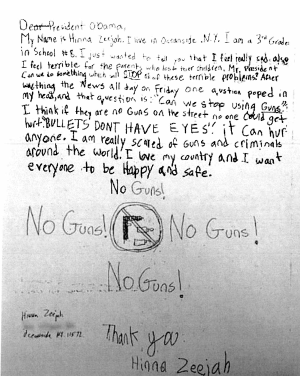 Dear President Obama,
My Name is Hinna Zeejah. I live in Oceanside, N.Y. I am a 3rd Grader
in School #8. I just wanted to tell you that I feel really sad. also
I feel terrible for the parents who lost their children. Mr. President
Can we do something which will STOP all of these terrible problems? After
watching the News all day on Friday one question poped in
my head, and that question is: "Can we stop using Guns"?
I think if they are no Guns on the street no one could get
hurt. "BULLETS DONT HAVE EYES"! it Can hurt
anyone. I am really scared of Guns and criminals
around the world. I love my country and I want
everyone to be Happy and safe.
No Guns!
No Guns! No Guns!
No Guns!
Hinna Zeejah
Oceanside NY 11572
Thank you
Hinna Zeejah